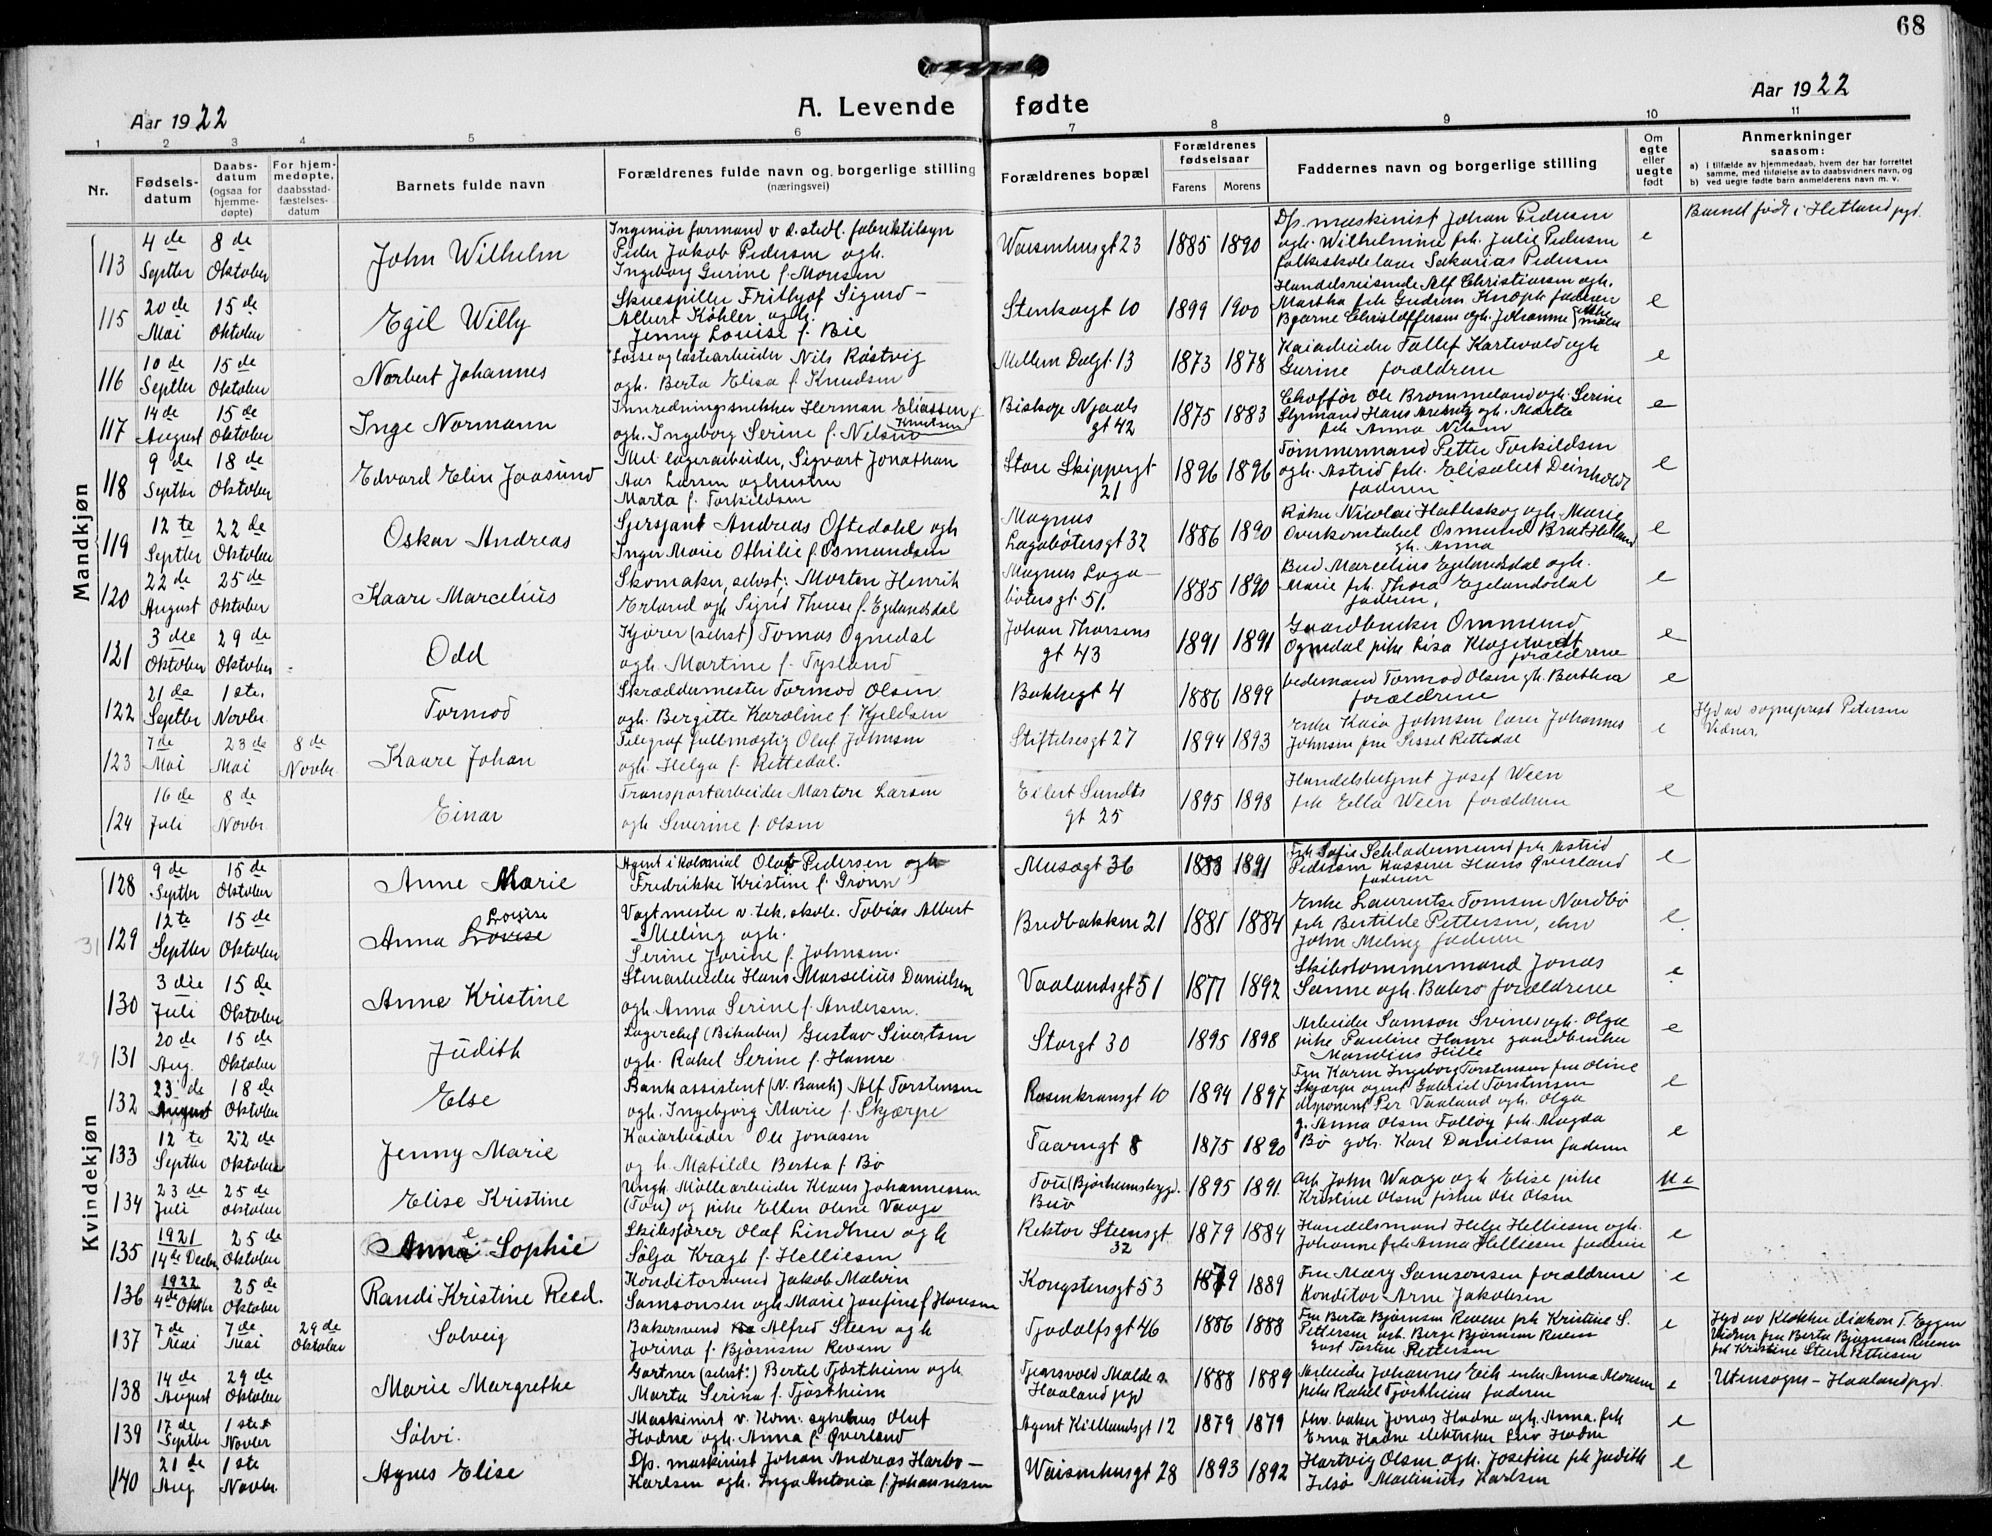 68
Aar 1922
A. Levende fødte
Aar 1922
1 2 3 4 5 6 7 8 9 10 11
Nr.
Fødsels-
datum
Daabs-
datum
(ogsaa for
hjemme-
døpte)
For hjem-
medøpte,
daabsstad-
fæstelses-
datum
Barnets fulde navn
Forældrenes fulde navn og borgerlige stilling
(næringsvei)
Forældrenes bopæl
Forældrenes
fødselsaar
Farens Morens
Faddernes navn og borgerlige stilling
Om
egte
eller
uegte
født
Anmerkninger
saasom:
a) I tilfælde av hjemmedaab, hvem der har forrettet
samme, med tilføielse av to daabsvidners navn, og
b) ved uegte fødte barn anmelderens navn m. v.
Mandkjøn
113 4de Septbr 8de Oktober John Wilhelm
Ingeniør formand v d. stedl. fabriktilsyn
Peder Jakob Pedersen ogh.
Ingeborg Gurine f. Monsen
Waisenhusgt 23 1885 1890
Dps. maskinist Johan Pedersen
ogh. Wilhelmine frk. Julie Pedersen
folkeskolelærer Sakarias Pedersen
e
Barnet født i Hetland pgd.
115 20de Mai 15de Oktober Egil Willy
Skuespiller Frithjof Sigurd-
Albert Köhler ogh.
Jenny Louise f. Bie
Stenkargt 10 1899 1900
Handelsreisende Alf Christiansen ogh.
Martha frk Gudrun Knoph faderen
Bjarne Christoffersen ogh. Johanne
e
116 10de Septbr 15de Oktober Norbert Johannes
Losse og lastearbeider Nils Røstvig
ogh. Berta Elisa f. Knudsen
Mellem Dalgt. 13 1873 1878
Kaiarbeider Tollef Kartevold ogh
Gurine forældrene
e
117 14de August 15de Oktober Inge Normann
Innredningssnekker Herman Eliassen
Knutsen
ogh. Ingeborg Serine f. Nilsen
Biskop Njaals
gt 42 1875 1883
Chaffør Ole Brommeland ogh. Serine
Styrmand Hans Arentz ogh. Marta
frk Anna Nilsen
e
118 9de Septbr 18de Oktober Edvard Elin Jaasund
Mel. lagerarbeider, Sigvart Jonathan
Aas Larsen og hustru
Marta f. Torkildsen
Store Skippergt
21 1896 1896
Tømmermand Petter Torkildsen
ogh. Astrid frk. Elisabet Deinholdt
faderen
e
119 12te Septbr 22de Oktober Oskar Andreas
Sersjant Andreas Oftedahl ogh
Inger Marie Othilie f. Osmundsen
Magnus
Lagabøtersgt 32 1886 1890
Nicolai Hatteskog ogh. Marie
Overkonstabel Osmund Brat Hetland
gh. Anna
e
120 22de August 25de Oktober Kaare Marcelius
Skomaker, selvst: Morten Henrik
Erland ogh Sigrid Therese f. Egelandsdal
Magnus Laga-
bøtersgt 51. 1885 1890
Bud Marcelius Egelandsdal ogh.
Marie frk. Thora Egelandsdal
faderen,
e
121 3die Oktober 29de Oktober Odd
Kjører (selvst) Tomas Ognedal
ogh. Martine f. Tysland
Johan Thorsens
gt 43 1891 1891
Gaardbruker Ommund
Ognedal pike Lisa Klogetvedt
forældrene
e
122 21de Septbr 1ste. Novbr. Tormod
Skræddermester Tormod Olsen
ogh. Bergitte Karoline f. Kjeldsen
Bakkegt 4 1886 1899
vedemand Tormod Olsen gh. Berthea
forældrene
e
123 7de Mai 23de Mai 8de Novbr. Kaare Johan
Telegraf fullmægtig Oluf Johnsen
ogh. Helga f. Rettedal.
Stiftelsesgt 27 1894 1893
Enke Kaia Johnsen lærer Johannes
Johnsen fru Sissel Rettedal
e
Hjd av sogneprest Petersen
Vidner.
124 16de Juli 8de Novbr. Einar
Transportarbeider Marton Larsen
ogh Severine f. Olsen
Eilert Sundts
gt 25 1895 1898
Handelsbetjent Josef Ween
frk Ella Ween forældrene
e
Kvindekjøn
128 9de Septbr 15de Oktober Anne Marie
Agent i Kolonial Olaf Pedersen ogh
Fredrikke Kristine f. Grønn
Musægt 36 1883 1891
Frk Sofie Schladermund frk Astrid
Pedersen Kasserer Hans Øverland
faderen
e
31
129 12te Septbr 15de Oktober Anna Lovise Lovise
Vagtmester v. tek. skole. Tobias Albert
Meling ogh.
Serine Jorine f. Johnsen.
Bredbakken 21 1881 1884
Enke Laurentse Tomsen Nordbø
frk Bertilde Pettersen, elev
John Meling faderen
e.
130 3die Juli 15de Oktober Anne Kristine
Stenarbeider Hans Marselius Danielsen
ogh. Anna Serine f. Andersen.
Vaalandsgt 51 1877 1892
Skibstømmermand Jonas
Sanne ogh. forældrene
e
29
131 20de Aug. 15de Oktober Judith
Lagerchef (Bikuben) Gustav Sivertsen
ogh. Rakel Serine f. Hamre
Storgt 30 1895 1898
Arbeider Samson Svines ogh. Olga
pike Pauline Hamre gaardbruker
Mandius Hille
e
132 23de August 18de Oktober Else
Bankassistent (N. Bank) Alf Torstensen
ogh. Ingebjørg Marie f. Skjærpe
Rosenkransgt 10 1894 1897
Fru Karen Ingeborg Torstensen fru Oline
Skjærpe agent Gabriel Torstensen
disponent Per Vaaland ogh. Olga
e
133 12te Septbr 22de Oktober Jenny Marie
Kaiarbeider Ole Jonasen
og h. Matilde Bertea f. Bø
Taarngt 8 1875 1890
g. Anna Olsen Folløy frk Magda
Bø gdb. Karl Danielsen faderen
e
134 23de Juli 25de Oktober Elise Kristine
Ungk. Møllearbeider Klaus Johannessen
(Tou) og pike Ellen Oline Vaage
Tou (Bjørheimsbygd.
1895 1891.
Arb John Waage ogh Elise pike
Kristine Olsen fisker Ole Olsen
u e
135 1921 14de Decbr. 25de Oktober Anna Sophie
Skibsfører Olaf Lindtner og h
Solga Kragh f. Helliesen
Rektor Steensgt
32 1879 1884
Handelsmand Helge Helliesen ogh.
Johanne frk Anna Helliesen faderen
e
136 1922 4de Oktbr 25de Oktober Randi Kristine Reed.
Konditorsvend Jakob Malvin
Samsonsen ogh Marie Josefine f Hansen
Kongstensgt 53 1879 1889
Fru Mary Samsonsen forældrene
Konditor Arne Jakobsen
e
137 7de Mai 7de Mai 29de Oktober Solveig
Bakersvend Alfred Steen ogh
Jorina f. Bjørnsen Revem
Tjodolfsgt 46 1886 1888
Fru Berta Bjørnsen frk Kristine S.
Pettersen ogh. Berge Bjørnsen
Tostine Pettersen
e
Hjd av Klokker diakon T. Eggen
Vidner fru Berta Bjørnsen
frk Kristine Steen Pettersen
138 14de August 29de Oktober Marie Margrethe
Gartner (selvst:) Bertel Tjøstheim ogh
Marta Serina f. Tjøstheim
Tjensvold Malde
Haaland pgd 1888 1889
Arbeider Johannes Eik enke Anna
pike Rakel Tjøstheim faderen
e
Utensogns - Haaland pgd.
139 17de Septbr 1ste Novbr Sølvi.
Maskinist v. Kom: sykehus Oluf
Hodne ogh. Anna f. Øverland
Agent Kiellandsgt 12 1879 1879
fhv. baker Jonas Hodne ogh. Anna. frk
Erna Hodne elektriker Hodne
e
140 21de Aug 1ste Novbr. Agnes Elise
Dps. maskinist Johan Andreas Harbo-
Karlsen ogh. Inga Antonia f. Johannesen
Waisenhusgt 28 1893 1892
Hartvig Olsen ogh. Josefine frk Judith
Jelsø Martinius Karlsen
e